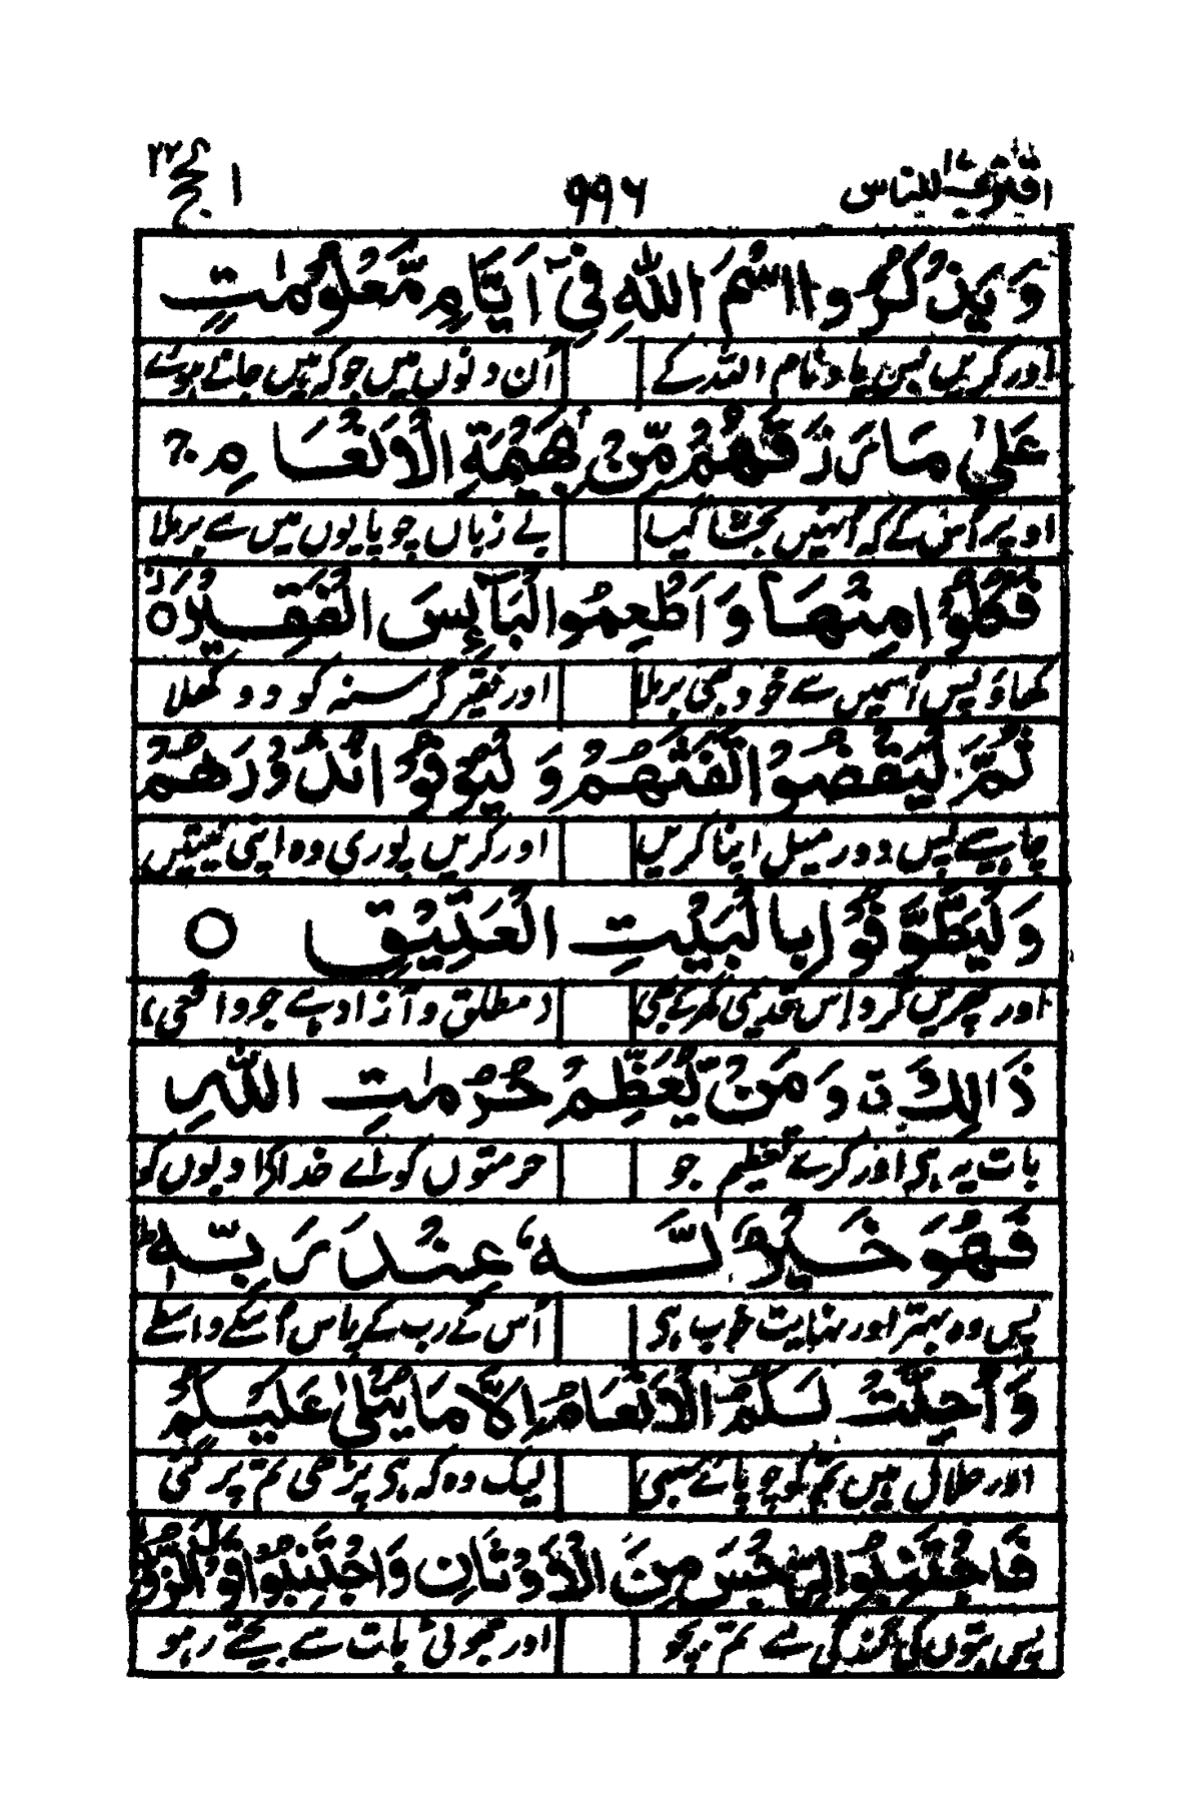 اقترب للناس ۱۷ ۹۹۶ ا لحج ۲۲
وَيَذْكُرُوا اسْمَ اللّٰهِ فِيْٓ اَيَّامٍ مَّعْلُوْمٰتٍ
اور کریں بس یاد نام اللہ کے اُن دنوں میں جو کہ ہیں جانے ہوئے
عَلٰى مَا رَزَقَهُمْ مِّنْۢ بَهِيْمَةِ الْاَنْعَامِ ۚ
اوپر اُس کے کہ اُنہیں بخشا کیا بے زباں چوپایوں میں سے برملا
فَكُلُوْا مِنْهَا وَاَطْعِمُوا الْبَآئِسَ الْفَقِيْرَ ○
کھاؤ پس اُسمیں سے خود بھی برملا اور فقیر گرسنہ کو دو کھلا
ثُمَّ لْيَقْضُوْا تَفَثَهُمْ وَلْيُوْفُوْا نُذُوْرَهُمْ
چاہیے پس دور میل اپنا کریں اور کریں پوری وہ اپنی نیتیں
وَلْيَطَّوَّفُوْا بِالْبَيْتِ الْعَتِيْقِ ○
اور پھریں گرد اِس قدیمی گھر کے بھی (مطلق و آزاد ہے جو واقعی)
ذَالِكَ ق وَمَنْ يُّعَظِّمْ حُرُمٰتِ اللّٰهِ
بات یہ ہی اور کرے تعظیم جو حرمتوں کو اے خدا کا دلوں کو
فَهُوَ خَيْرٌ لَّهٗ عِنْدَ رَبِّهٖ ؕ
پس وہ بہتر اور نہایت خوب ہی اُس کے رب کے پاس اُسکے واسطے
وَاُحِلَّتْ لَكُمُ الْاَنْعَامُ اِلَّا مَا يُتْلٰى عَلَيْكُمْ
اور حلال ہیں تم کو چوپائے سبھی لیک وہ کہ ہی پڑھی تم پر گئی
فَاجْتَنِبُوا الرِّجْسَ مِنَ الْاَوْثَانِ وَاجْتَنِبُوْا قَوْلَ الزُّوْرِ
پس بتوں کی گندگی سے تم بچو اور جھوٹی بات سے بچتے رہو